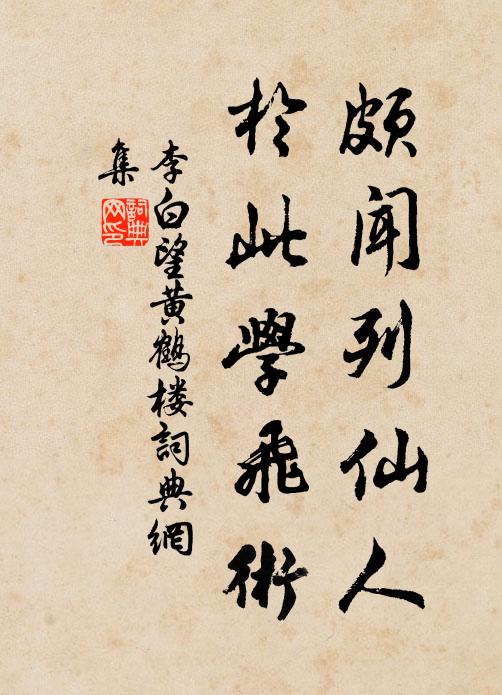 頗闻列仙人
於此學飛術
李白望黄鶴楼詞典網
集
詞典
网印